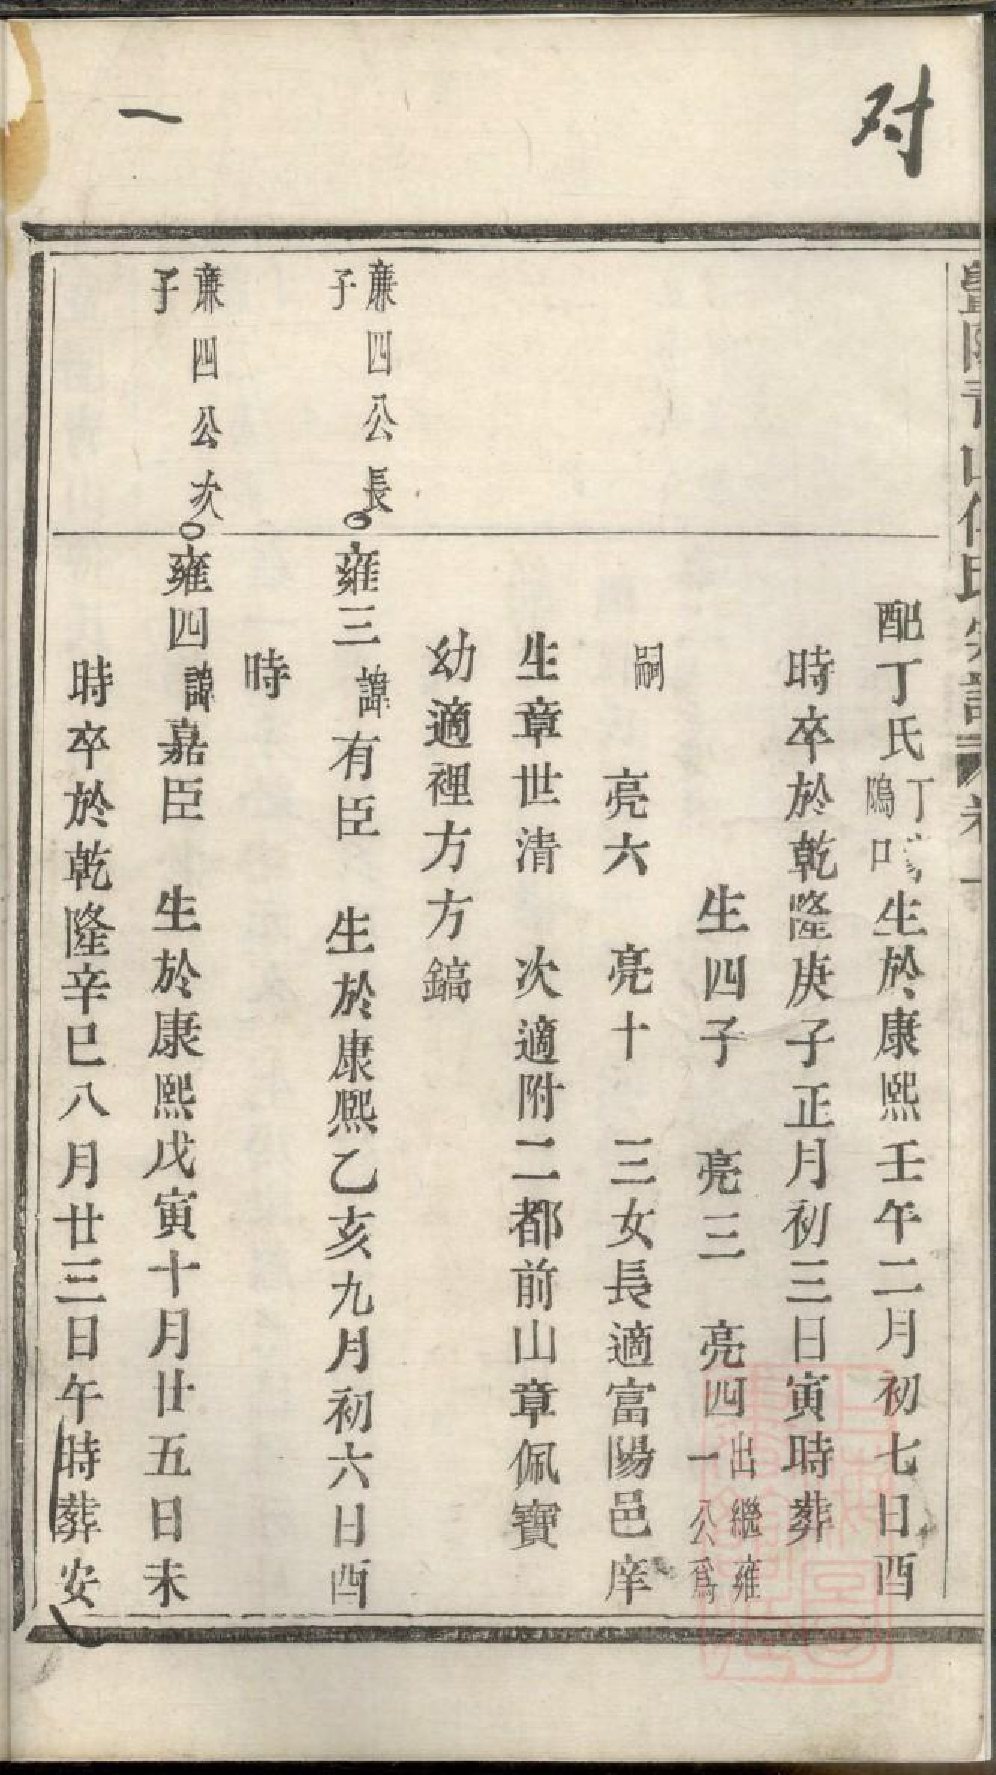 对
一
配丁氏丁塢塢口生於康熙壬午二月初七日酉
時卒於乾隆庚子正月初三日寅時葬
生四子 亮三 亮四出繼雍一公爲
嗣 亮六 亮十 三女長適富陽邑庠
生章世清 次適附二都前山章佩寶
幼適裡方方鎬
廉四公長子
雍三諱有臣 生於康熙乙亥九月初六日酉
時
廉四公次子
雍四諱嘉臣 生於康熙戊寅十月廿五日未
時卒於乾隆辛巳八月廿三日午時葬安